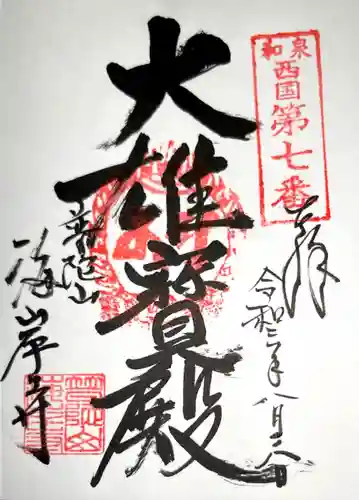 和泉
西国第七番
奉拝
令和二年八月二日
大雄寳殿
普陀山
海岸寺